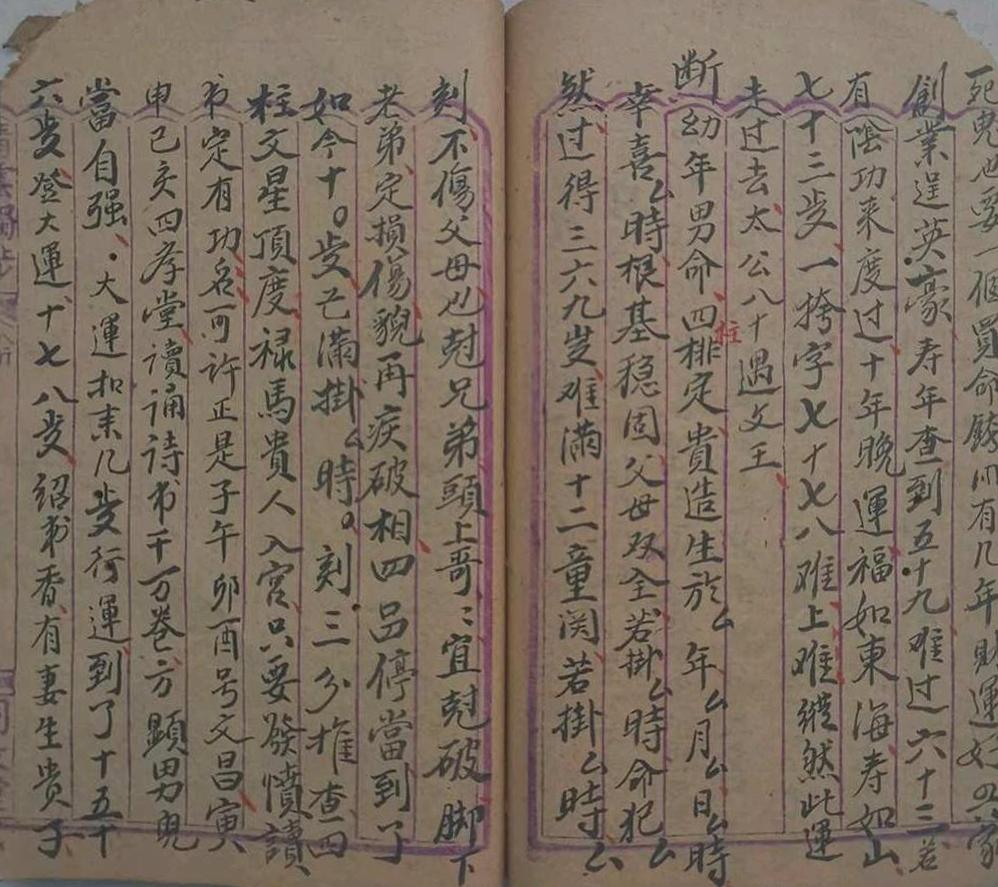 死鬼也要一個買命錢川有几年財運好四六家
創業逞英豪寿年查到五十九难过六十三若
有陰功来度过十年晚運福如東海寿如山
七十三岁一挎字七十七八难上难縱然此運
走过去太公八十遇文王
断幼年男命四柱排定貴造生於厶年厶月厶日厶時
幸喜厶時根基稳固父母双全若掛厶時命犯厶
然过得三六九岁难满十二童関若掛厶時厶
刻不傷父母也尅兄弟頭上哥々宜尅破脚下
老弟定損傷貎再疾破相四吕停當到了
如今十〇岁已满掛厶時〇刻三分推查四
柱文星頂度禄馬貴人入宫只要發憤讀
书定有功名可许正是子午卯酉号文昌寅
申巳亥四孝堂讀诵诗书千万卷方顯男児
當自强大運扣来几岁行運到了十五十
六岁登大運十七八岁绍书香有妻生贵子